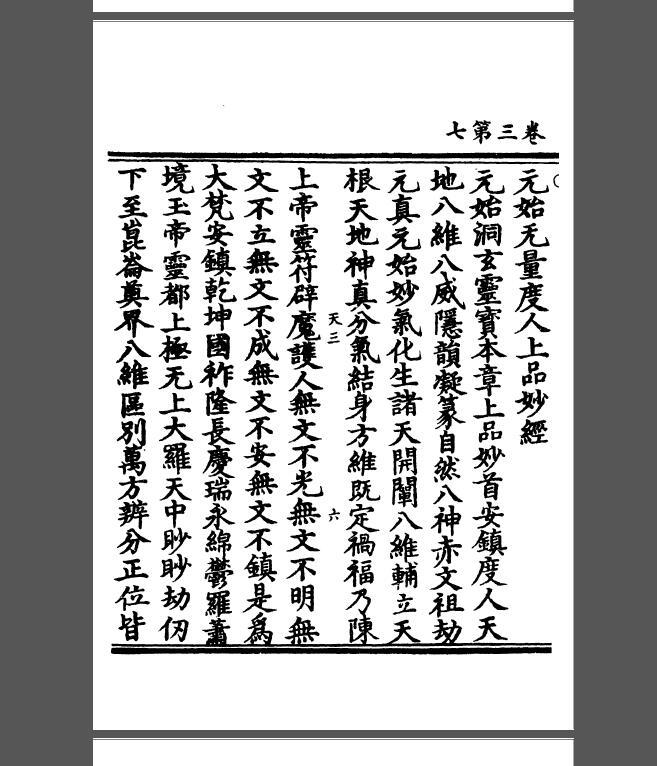 卷三第七
元始无量度人上品妙經
元始洞玄靈寶本章上品妙首安鎮度人天
地八維八威隱韻凝篆自然八神赤文祖劫
元真元始妙氣化生諸天開闡八維輔立天
根天地神真分氣結身方維既定禍福乃陳
天三 六
上帝靈符辟魔護人無文不光無文不明無
文不立無文不成無文不安無文不鎮是為
大梵安鎮乾坤國祚隆長慶瑞永綿鬱羅蕭
境玉帝靈都上極无上大羅天中眇眇劫仞
下至崑崙奠界八維區別萬方辨分正位皆